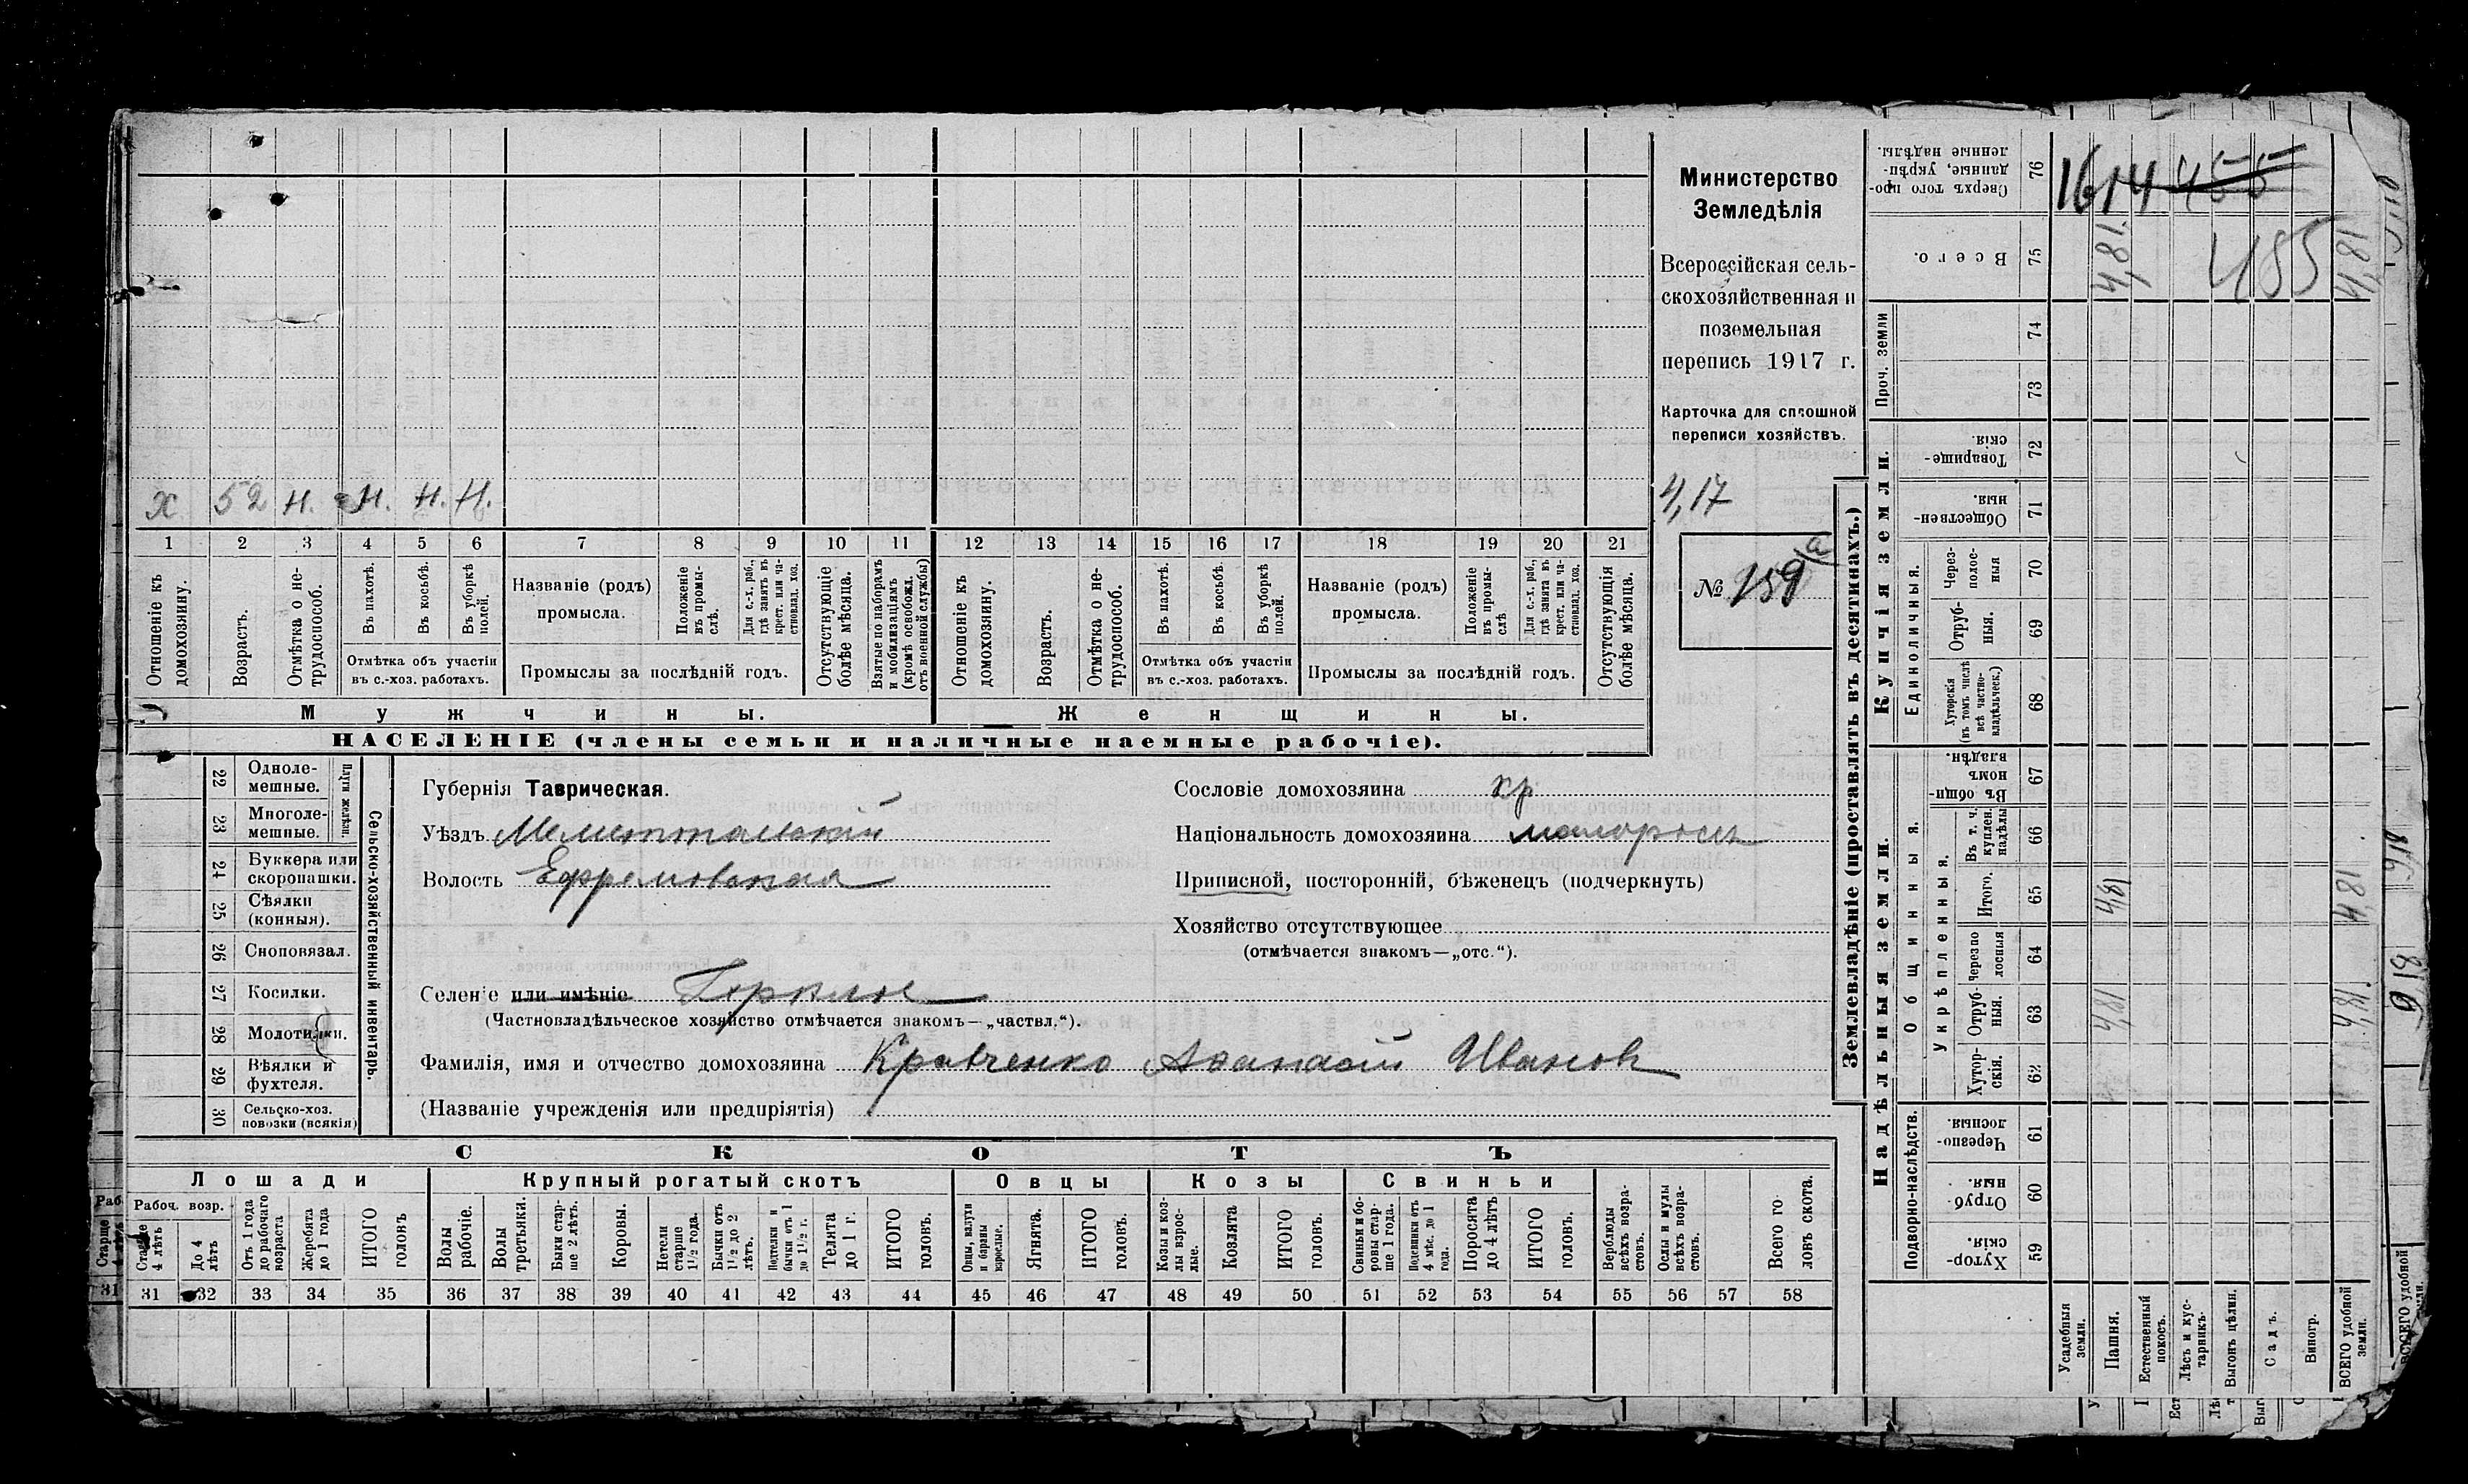 Министерство
Земледѣлія
Всероссійская сель-
скохозяйственная и
поземельная
перепись 1917 г.
Карточка для сплошной
переписи хозяйствъ.
4,17
№ 159 а
х 52 н. н. н. н.
1 2 3 4 5 6 7 8 9 10 11 12 13 14 15 16 17 18 19 20 21
Отношеніе къ домохозяину.
Возрастъ.
Отмѣтка о не-трудоспособ.
Въ пахотѣ.
Въ косьбѣ.
Въ уборкѣ полей.
Отмѣтка объ участіи
въ с.-хоз. работахъ.
Названіе (родъ)
промысла.
Положеніе въ промы-слѣ.
Для с.-х. раб., гдѣ занятъ въ крест. или ча-стновлад. хоз.
Промыслы за послѣдній годъ.
Отсутствующіе болѣе мѣсяца.
Взятые по наборамъ и мобилизаціямъ (кромѣ освобожд. отъ военной службы)
Отношеніе къ домохозяину.
Возрастъ.
Отмѣтка о не-трудоспособ.
Въ пахотѣ.
Въ косьбѣ.
Въ уборкѣ полей.
Отмѣтка объ участіи
въ с.-хоз. работахъ.
Названіе (родъ)
промысла.
Положеніе въ промы-слѣ
Для с.-х. раб., гдѣ занята въ крест. или ча-стновлад. хоз.
Промыслы за послѣдній годъ.
Отсутствующія болѣе мѣсяца.
Мужчины.
Женщины.
НАСЕЛЕНІЕ (члены семьи и наличные наемные рабочіе).
Сельско-хозяйственный инвентарь.
Плуги желѣзн.
22 Одноле-мешные.
23 Многоле-мешные.
24 Буккера или скоропашки.
25 Сѣялки (конныя).
26 Сноповязал.
27 Косилки.
28 Молотилки.
29 Вѣялки и фухтеля.
30 Сельско-хоз. повозки (всякія)
Губернія Таврическая.
Уѣздъ Мелитопольскій
Волость Ефремовская
Селеніе или имѣніе
(Частновладѣльческое хозяйство отмѣчается знакомъ — „частвл.“).
Фамилія, имя и отчество домохозяина Кравченко Аѳанасій Ивановъ
(Названіе учрежденія или предпріятія)
Сословіе домохозяина кр
Національность домохозяина малороссъ
Приписной, посторонній, бѣженецъ (подчеркнуть)
Хозяйство отсутствующее
(отмѣчается знакомъ — „отс.“).
СКОТЪ
Лошади
Крупный рогатый скотъ
Овцы
Козы
Свиньи
Рабоч. возр.
Старше 4 лѣтъ
До 4 лѣтъ
Отъ 1 года до рабочаго возраста
Жеребята до 1 года
ИТОГО головъ
Волы рабочіе.
Волы третьяки.
Быки стар-ше 2 лѣтъ.
Коровы.
Нетели старше 1½ года.
Бычки отъ 1½ до 2 лѣтъ.
Подтелки и бычки отъ 1 до 1½ г.
Телята до 1 г.
ИТОГО головъ.
Овцы, валухи и бараны взрослые.
Ягнята.
ИТОГО головъ.
Козы и коз-лы взрос-лые.
Козлята
ИТОГО головъ.
Свиньи и бо-ровы стар-ше 1 года.
Подсвинки отъ 4 мѣс. до 1 года.
Поросята до 4 лѣтъ
ИТОГО головъ.
Верблюды всѣхъ возра-стовъ.
Ослы и мулы всѣхъ возра-стовъ.
Всего го-ловъ скота.
31 32 33 34 35 36 37 38 39 40 41 42 43 44 45 46 47 48 49 50 51 52 53 54 55 56 57 58
Землевладѣніе (проставлять въ десятинахъ.)
Надѣльныя земли.
Купчія земли.
Проч. земли
76 Сверхъ того про-данные, укрѣп-ленные надѣлы.
75 Всего.
74
73
72 Товарище-скія.
71 Обществен-ныя.
Единоличныя.
70 Через-полос-ныя
69 Отруб-ныя.
68 Хуторскія (въ томъ числѣ всѣ частно-владѣльческ.)
67 Въ общи-номъ владѣн.
Общинныя.
Укрѣпленныя.
66 Въ т. ч. куплен. надѣлы
65 Итого.
64 Черезпо лосныя
63 Отруб-ныя.
62 Хутор-скія.
Подворно-наслѣдств.
61 Черезпо-лосныя.
60 Отруб-ныя.
59 Хутор-скія.
Усадебныя земли.
Пашня.
Естественный покосъ.
Лѣсъ и кус-тарникъ.
Выгонъ цѣлин.
Садъ.
Виногр.
ВСЕГО удобной земли.
1614 455
485
4,81 4,81
4,81 4,81
4,81 4,81
9,18
ВСЕГО удобной